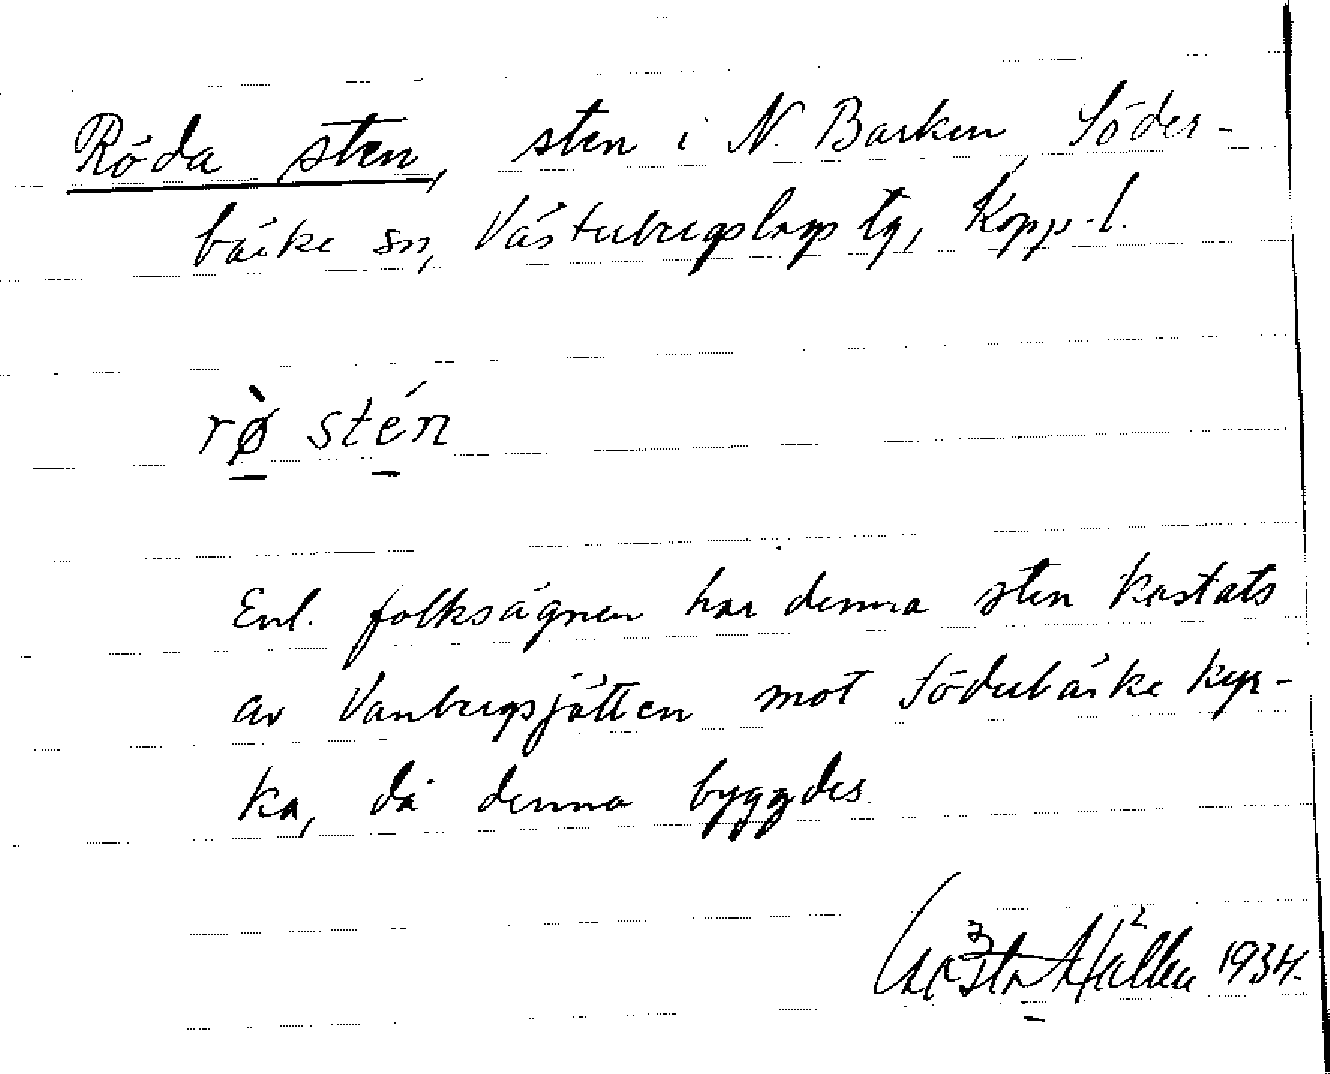 Röda sten, sten i N. Barken, Söder-
bärke sn, Västerbergslags tg, Kopp.l.
rø̀ stén
Enl. folksägnen har denna sten kastats
av Vanbergsjätten mot Söderbärke kyr-
ka, då denna byggdes
1934.